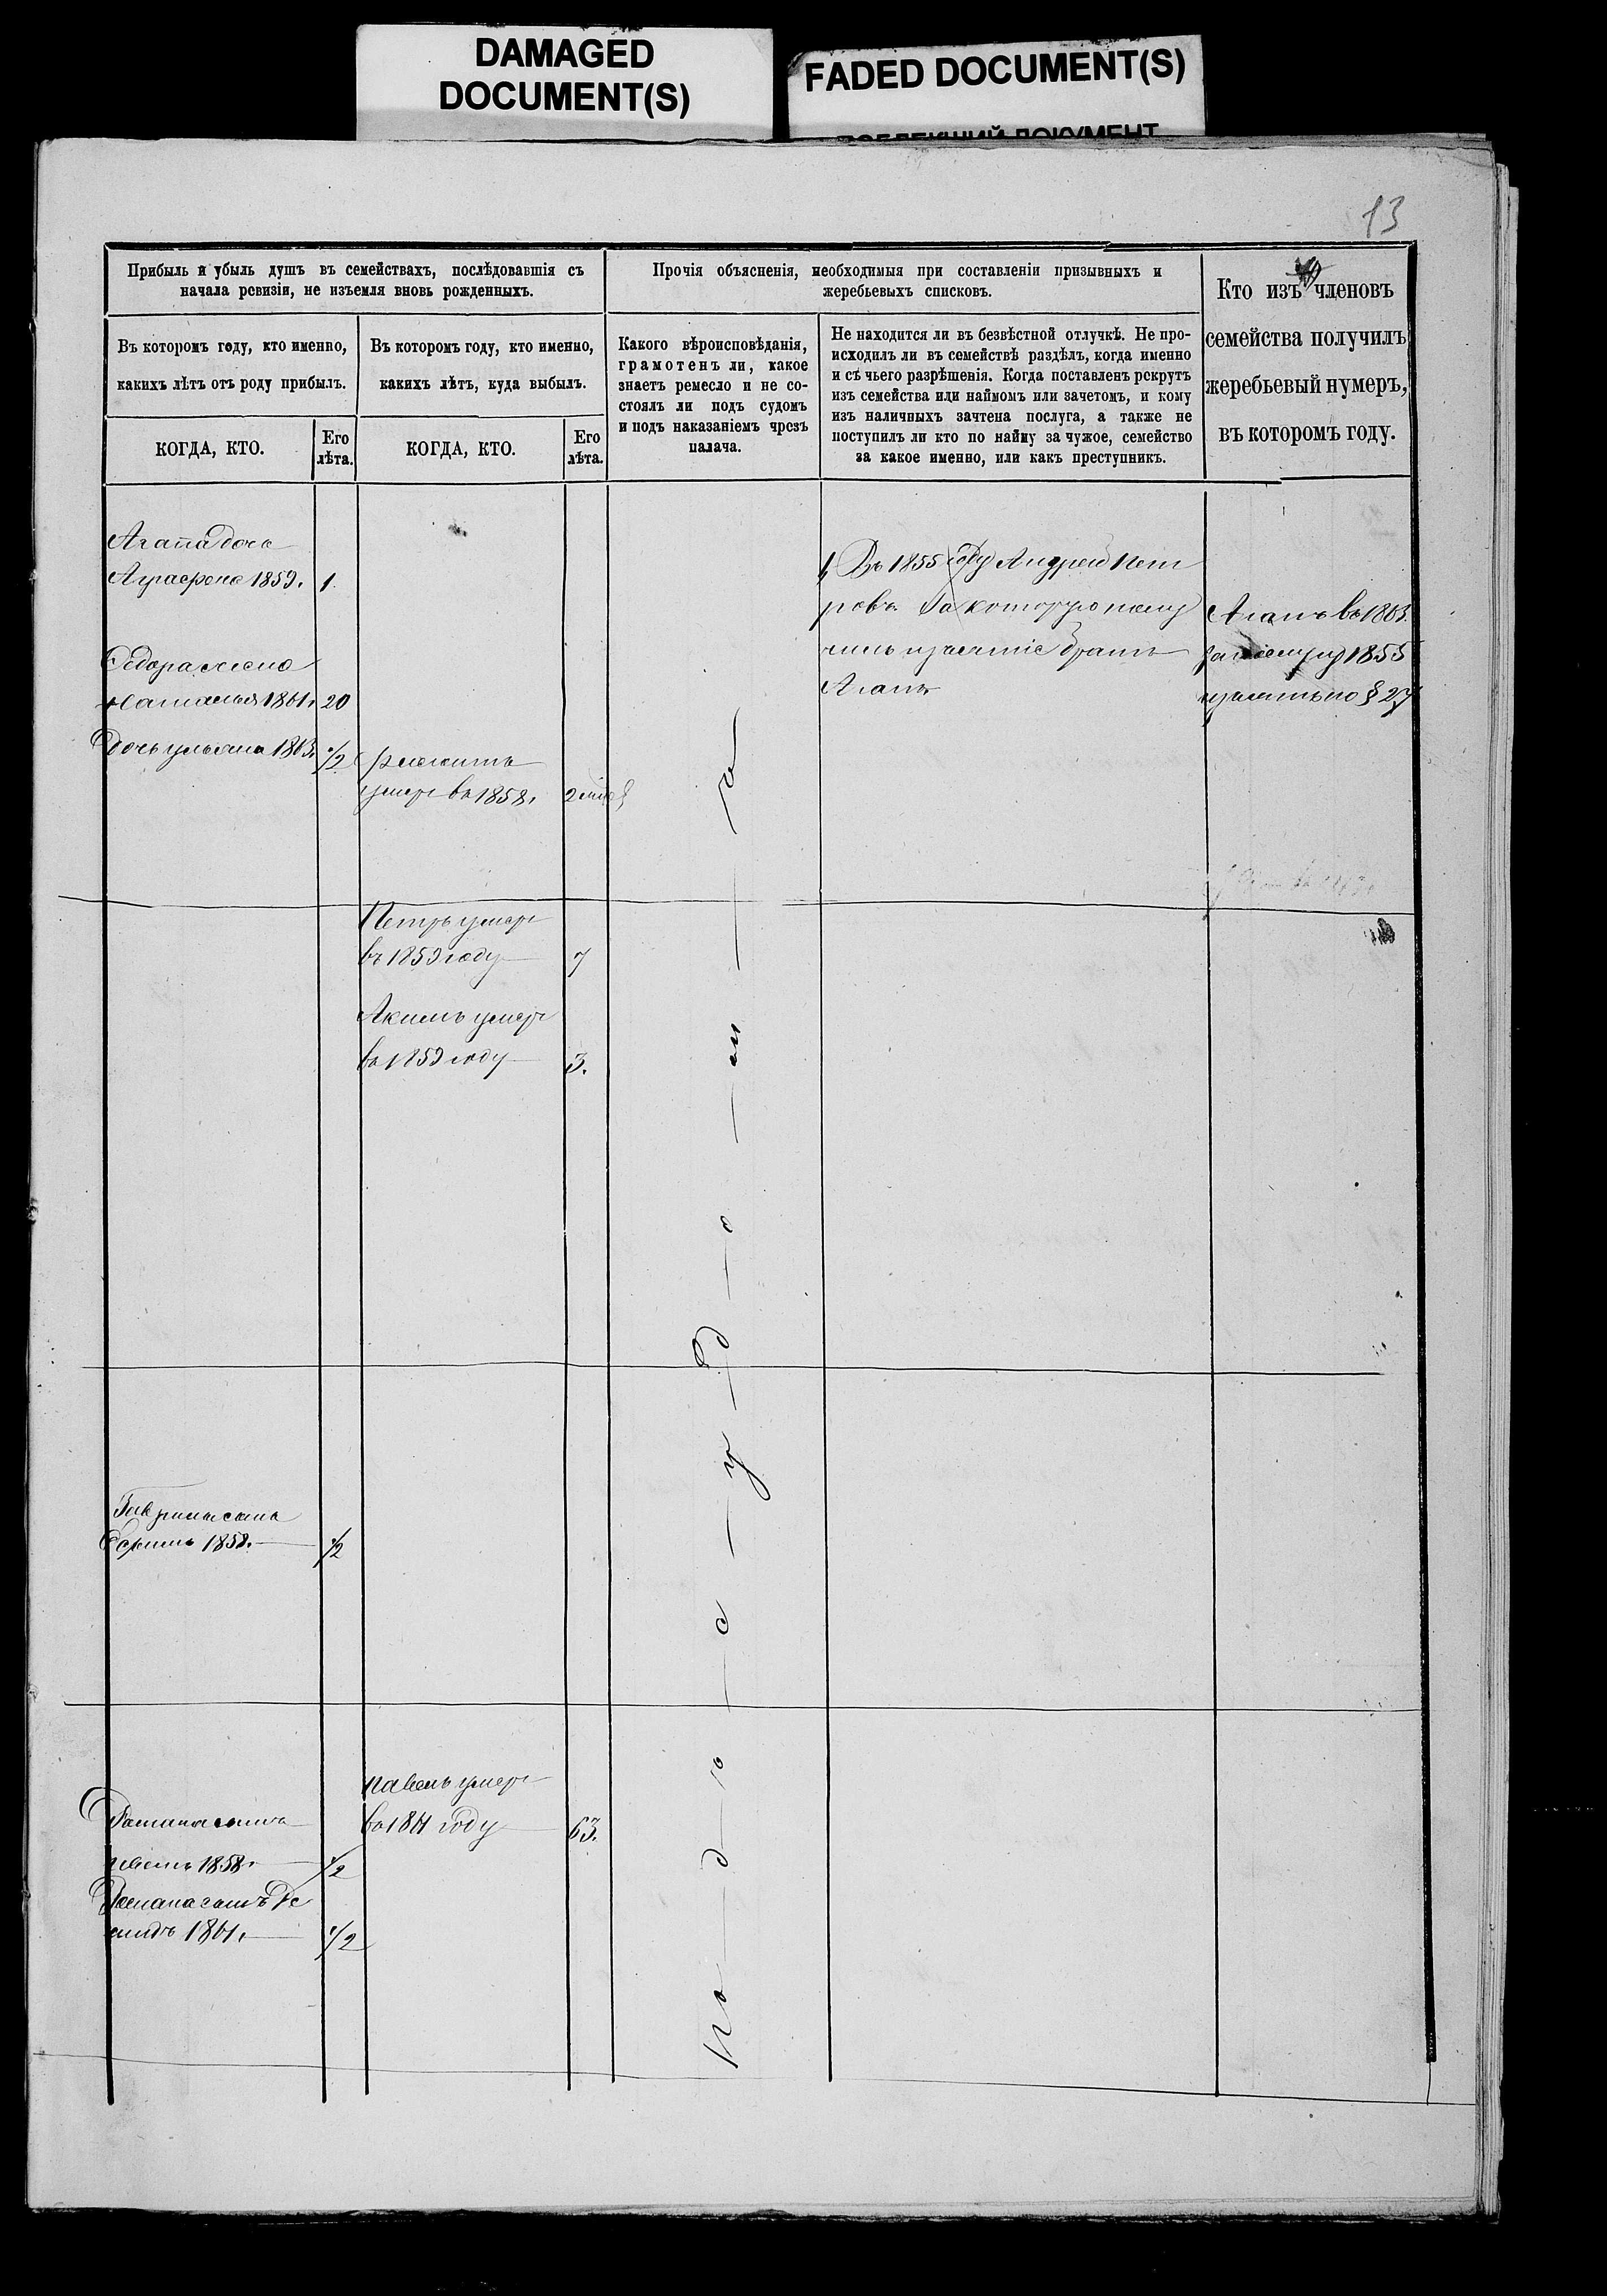 DAMAGED
DOCUMENT(S)
FADED DOCUMENT(S)
13
Прибыль и убыль душъ въ семействахъ, послѣдовавшія съ
начала ревизіи, не изъемля вновь рожденныхъ.
Прочія объясненія, необходимыя при составленіи призывныхъ и
жеребьевыхъ списковъ.
Кто изъ членовъ
семейства получилъ
жеребьевый нумеръ,
въ которомъ году.
Въ которомъ году, кто именно,
какихъ лѣтъ отъ роду прибылъ.
Въ которомъ году, кто именно,
какихъ лѣтъ, куда выбылъ.
Какого вѣроисповѣданія,
грамотенъ ли, какое
знаетъ ремесло и не со-
стоялъ ли подъ судомъ
и подъ наказаніемъ чрезъ
палача.
Не находится ли въ безвѣстной отлучкѣ. Не про-
исходилъ ли въ семействѣ раздѣлъ, когда именно
и съ чьего разрѣшенія. Когда поставленъ рекрутъ
изъ семейства или наймомъ или зачетомъ, и кому
изъ наличныхъ зачтена послуга, а также не
поступилъ ли кто по найму за чужое, семейство
за какое именно, или какъ преступникъ.
КОГДА, КТО.
Его
лѣта.
КОГДА, КТО.
Его
лѣта.
Агапа дочь
Аграфена 1859. 1.
Федора жена
Наталья 1861. 20
дочь ульяна 1863. 1/2
умеръ въ 1858.
Въ 1855 году Андрей Пет
ровъ За которую полу
чилъ изъятіе братъ
Агапъ
Агапъ въ 1863.
1855
изъятъ по § 27
Петръ умеръ
въ 1859 году 7
Акимъ умеръ
въ 1859 году 3.
Гаврила сынъ
Ефимъ 1858. 1/2
павелъ умеръ
въ 1861 году 63.
Романа сынъ
1858. 1/2
Романа сынъ Де
мидъ 1861. 1/2